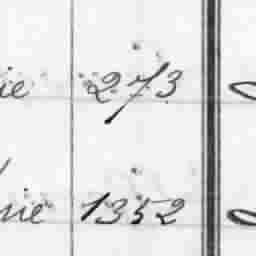 ie 273
rie 1352